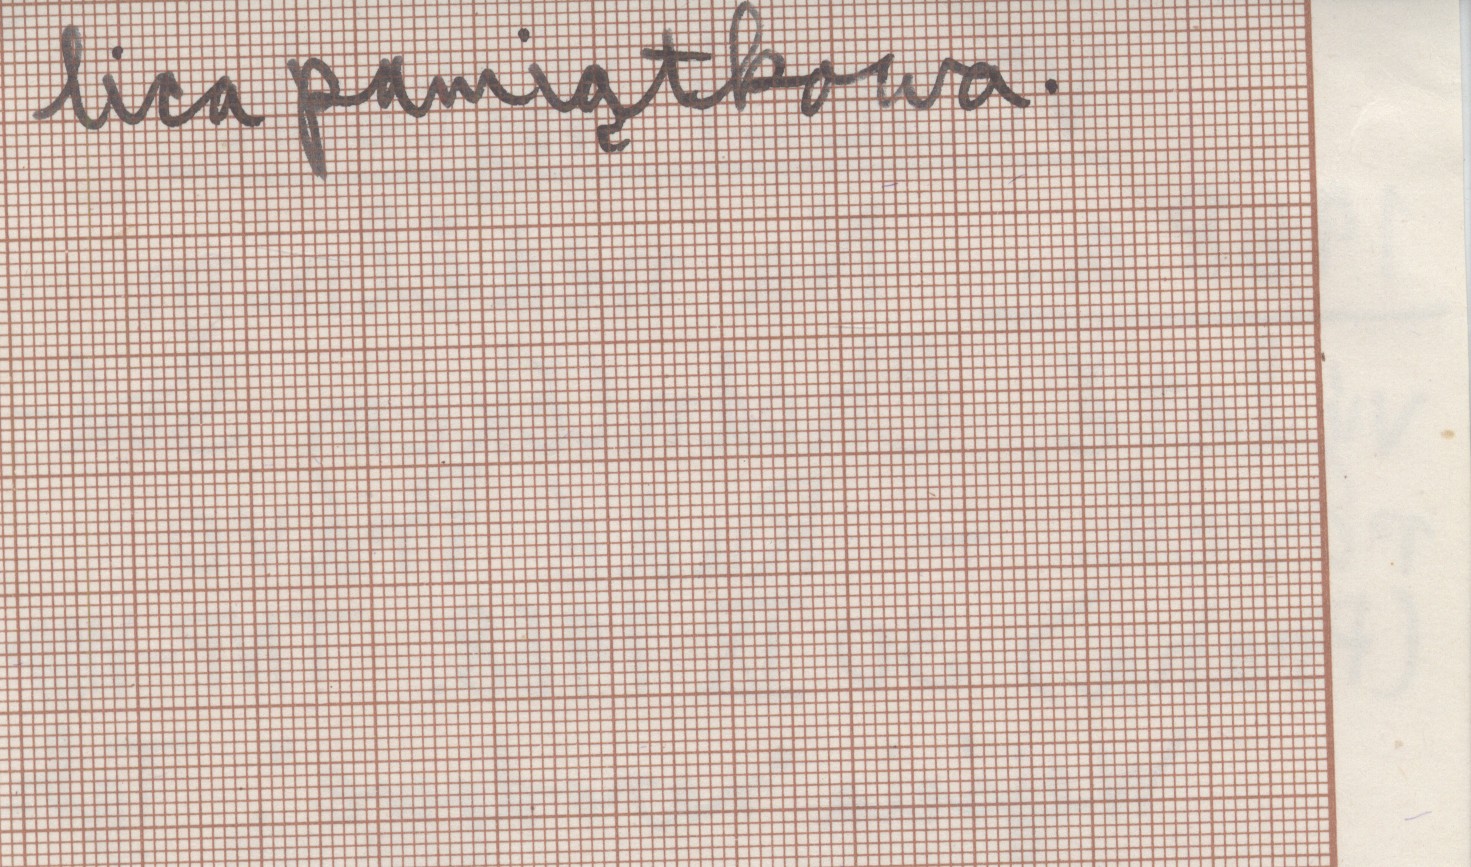 lica pamiątkowa.